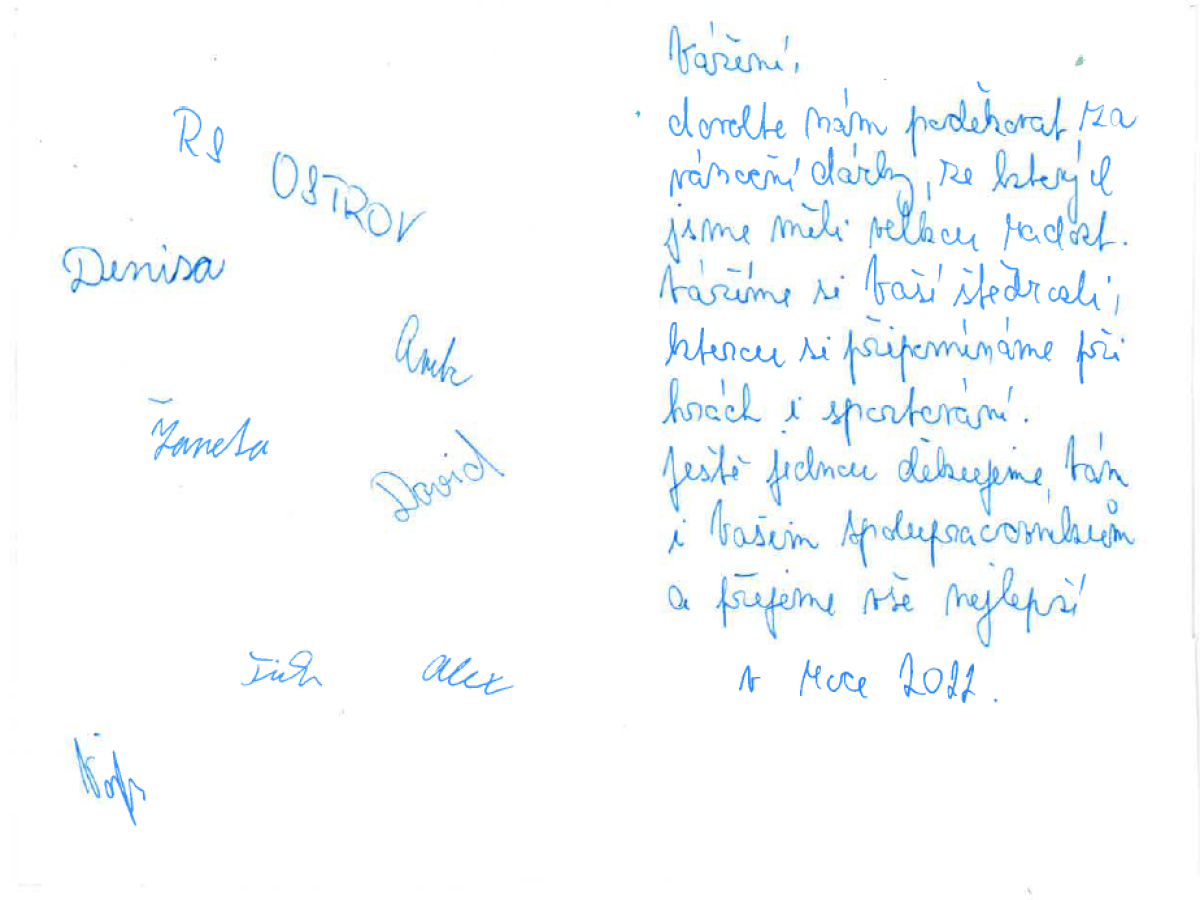 RS
OSTROV
Denisa
Žaneta
David
Alex
Vážení,
dovolte nám poděkovat za
vánoční dárky, ze kterých
jsme měli velkou radost.
Vážíme si Vaší štědrosti,
kterou si připomínáme při
hrách i sportování.
Ještě jednou děkujeme Vám
i Vašim spolupracovníkům
a přejeme vše nejlepší
v roce 2022.